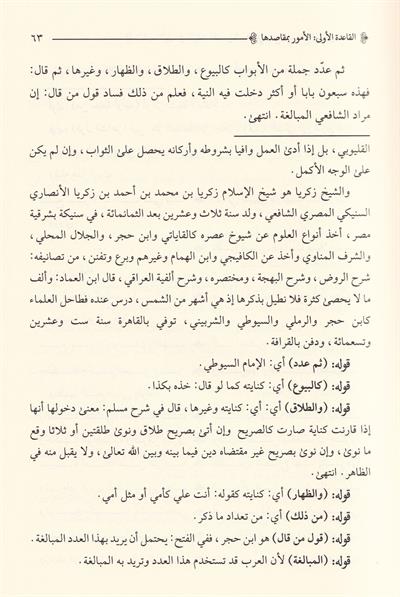 القاعدة الأولى: الأمور بمقاصدها ٦٣
ثم عدّد جملة من الأبواب كالبيوع، والطلاق، والظهار، وغيرها، ثم قال:
فهذه سبعون بابا أو أكثر دخلت فيه النية، فعلم من ذلك فساد قول من قال: إن
مراد الشافعي المبالغة. انتهىٰ.
القليوبي، بل إذا أدىٰ العمل وافيا بشروطه وأركانه يحصل علىٰ الثواب، وإن لم يكن
علىٰ الوجه الأكمل.
والشيخ زكريا هو شيخ الإسلام زكريا بن محمد بن أحمد بن زكريا الأنصاري
السنيكي المصري الشافعي، ولد سنة ثلاث وعشرين بعد الثمانمائة، في سنيكة بشرقية
مصر، أخذ أنواع العلوم عن شيوخ عصره كالقاياتي وابن حجر، والجلال المحلي،
والشرف المناوي وأخذ عن الكافيجي وابن الهمام وغيرهم وبرع وتفنن، من تصانيفه:
شرح الروض، وشرح البهجة، ومختصره، وشرح ألفية العراقي، قال ابن العماد: وألف
ما لا يحصىٰ كثرة فلا نطيل بذكرها إذ هي أشهر من الشمس، درس عنده فطاحل العلماء
كابن حجر والرملي والسيوطي والشربيني، توفي بالقاهرة سنة ست وعشرين
وتسعمائة، ودفن بالقرافة.
قوله: (ثم عدد) أي: الإمام السيوطي.
قوله: (كالبيوع) أي: كنايته كما لو قال: خذه بكذا.
قوله: (والطلاق) أي: أي: كنايته وغيرها، قال في شرح مسلم: معنىٰ دخولها أنها
إذا قارنت كناية صارت كالصريح وإن أتىٰ بصريح طلاق ونوىٰ طلقتين أو ثلاثا وقع
ما نوىٰ، وإن نوىٰ بصريح غير مقتضاه دين فيما بينه وبين الله تعالىٰ، ولا يقبل منه في
الظاهر. انتهىٰ.
قوله: (والظهار) أي: كنايته كقوله: أنت علي كأمي أو مثل أمي.
قوله: (من ذلك) أي: من تعداد ما ذكر.
قوله: (قول من قال) هو ابن حجر، ففي الفتح: يحتمل أن يريد بهذا العدد المبالغة.
قوله: (المبالغة) لأن العرب قد تستخدم هذا العدد وتريد به المبالغة.